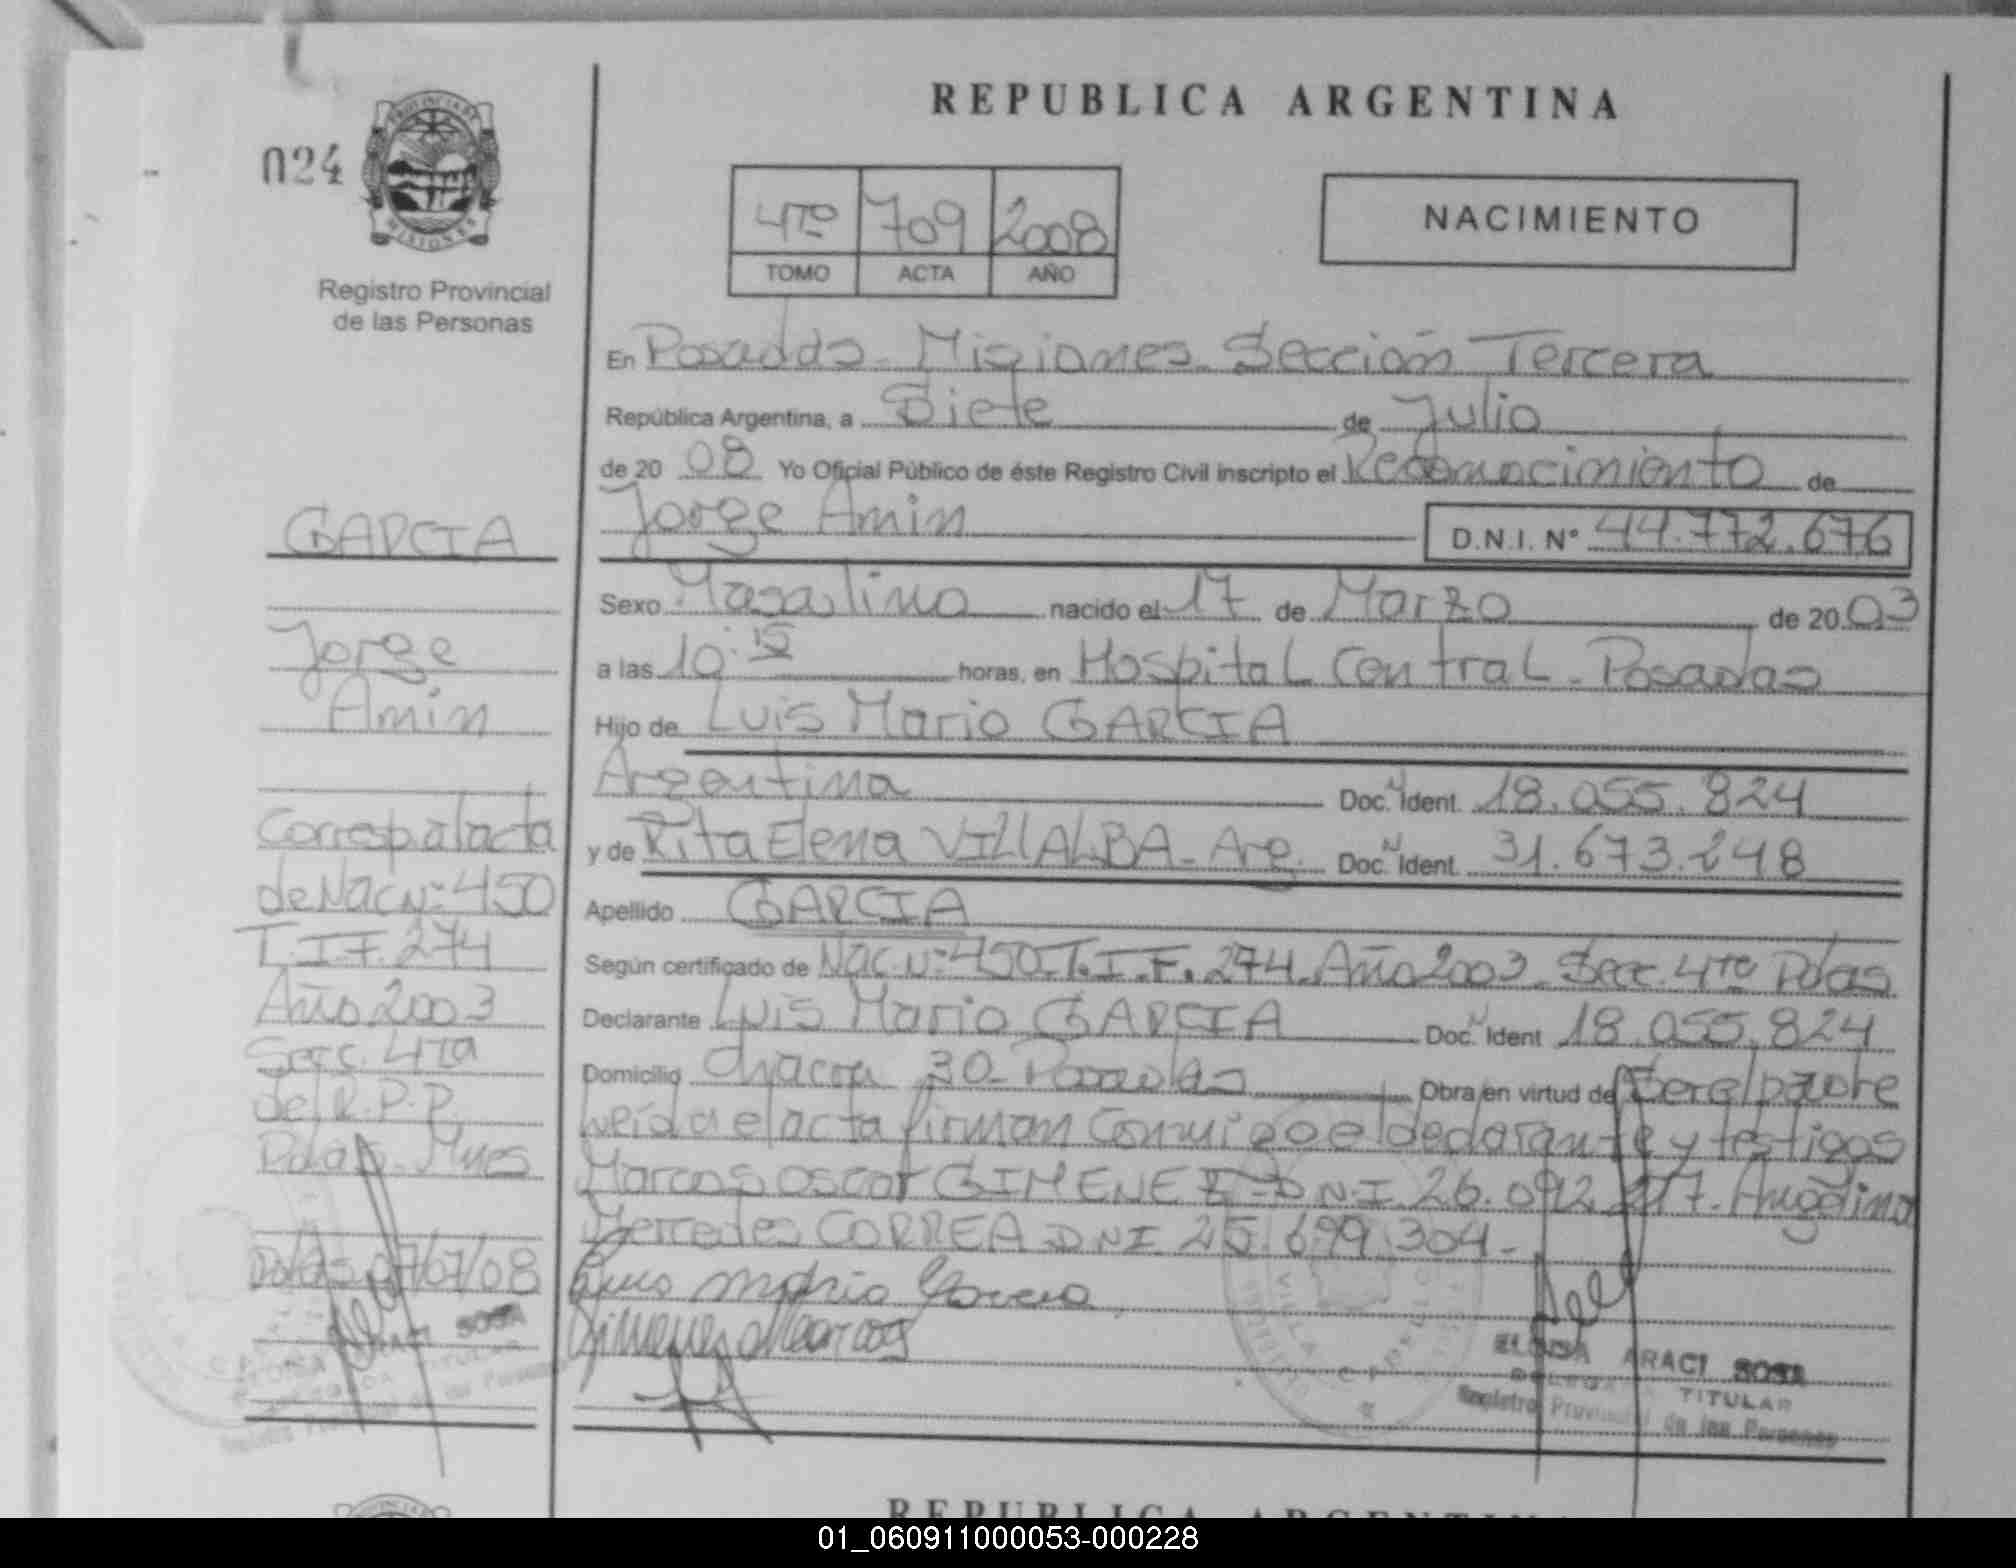 REPUBLICA ARGENTINA
024
PROVINCIA DE
MISIONES
Registro Provincial
de las Personas
4to 709 2008
TOMO ACTA AÑO
NACIMIENTO
GARCIA
Jorge
Amin
Corresp. al acta
de Nac Nº 450
T. I F. 274
Año 2003
Secc. 4ta
del R.P.P.
Pdas. Mnes
Pdas 07/07/08
En Posadas - Misiones - Sección Tercera
República Argentina, a Siete de Julio
de 2008 Yo Oficial Público de éste Registro Civil inscripto el Reconocimiento de
Jorge Amin D.N.I. Nº 44.772.676
Sexo Masculino nacido el 17 de Marzo de 2003
a las 10:15 horas, en Hospital Central - Posadas
Hijo de Luis Mario GARCIA
Argentina Doc. N Ident. 18.055.824
y de Rita Elena VILLALBA - Arg. Doc. N Ident. 31.673.248
Apellido GARCIA
Según certificado de Nac. Nº 450. T. I. F. 274. Año 2003 - Secc. 4ta Pdas
Declarante Luis Mario GARCIA Doc. N Ident 18.055.824
Domicilio Chacra 30 - Posadas Obra en virtud de Ser el padre
Leída el acta firman conmigo el declarante y testigos
Marcos Oscar GIMENEZ - D.N.I. 26.092.217. Angelina
Mercedes CORREA DNI 25.699.304 -
Luis Mario Garcia
Gimenez Marcos
ELODIA ARACI SOSA
DELEGADA TITULAR
Registro Provincial de las Personas
SOSA
TITULAR
REPUBLICA ARGENTINA
01_060911000053-000228